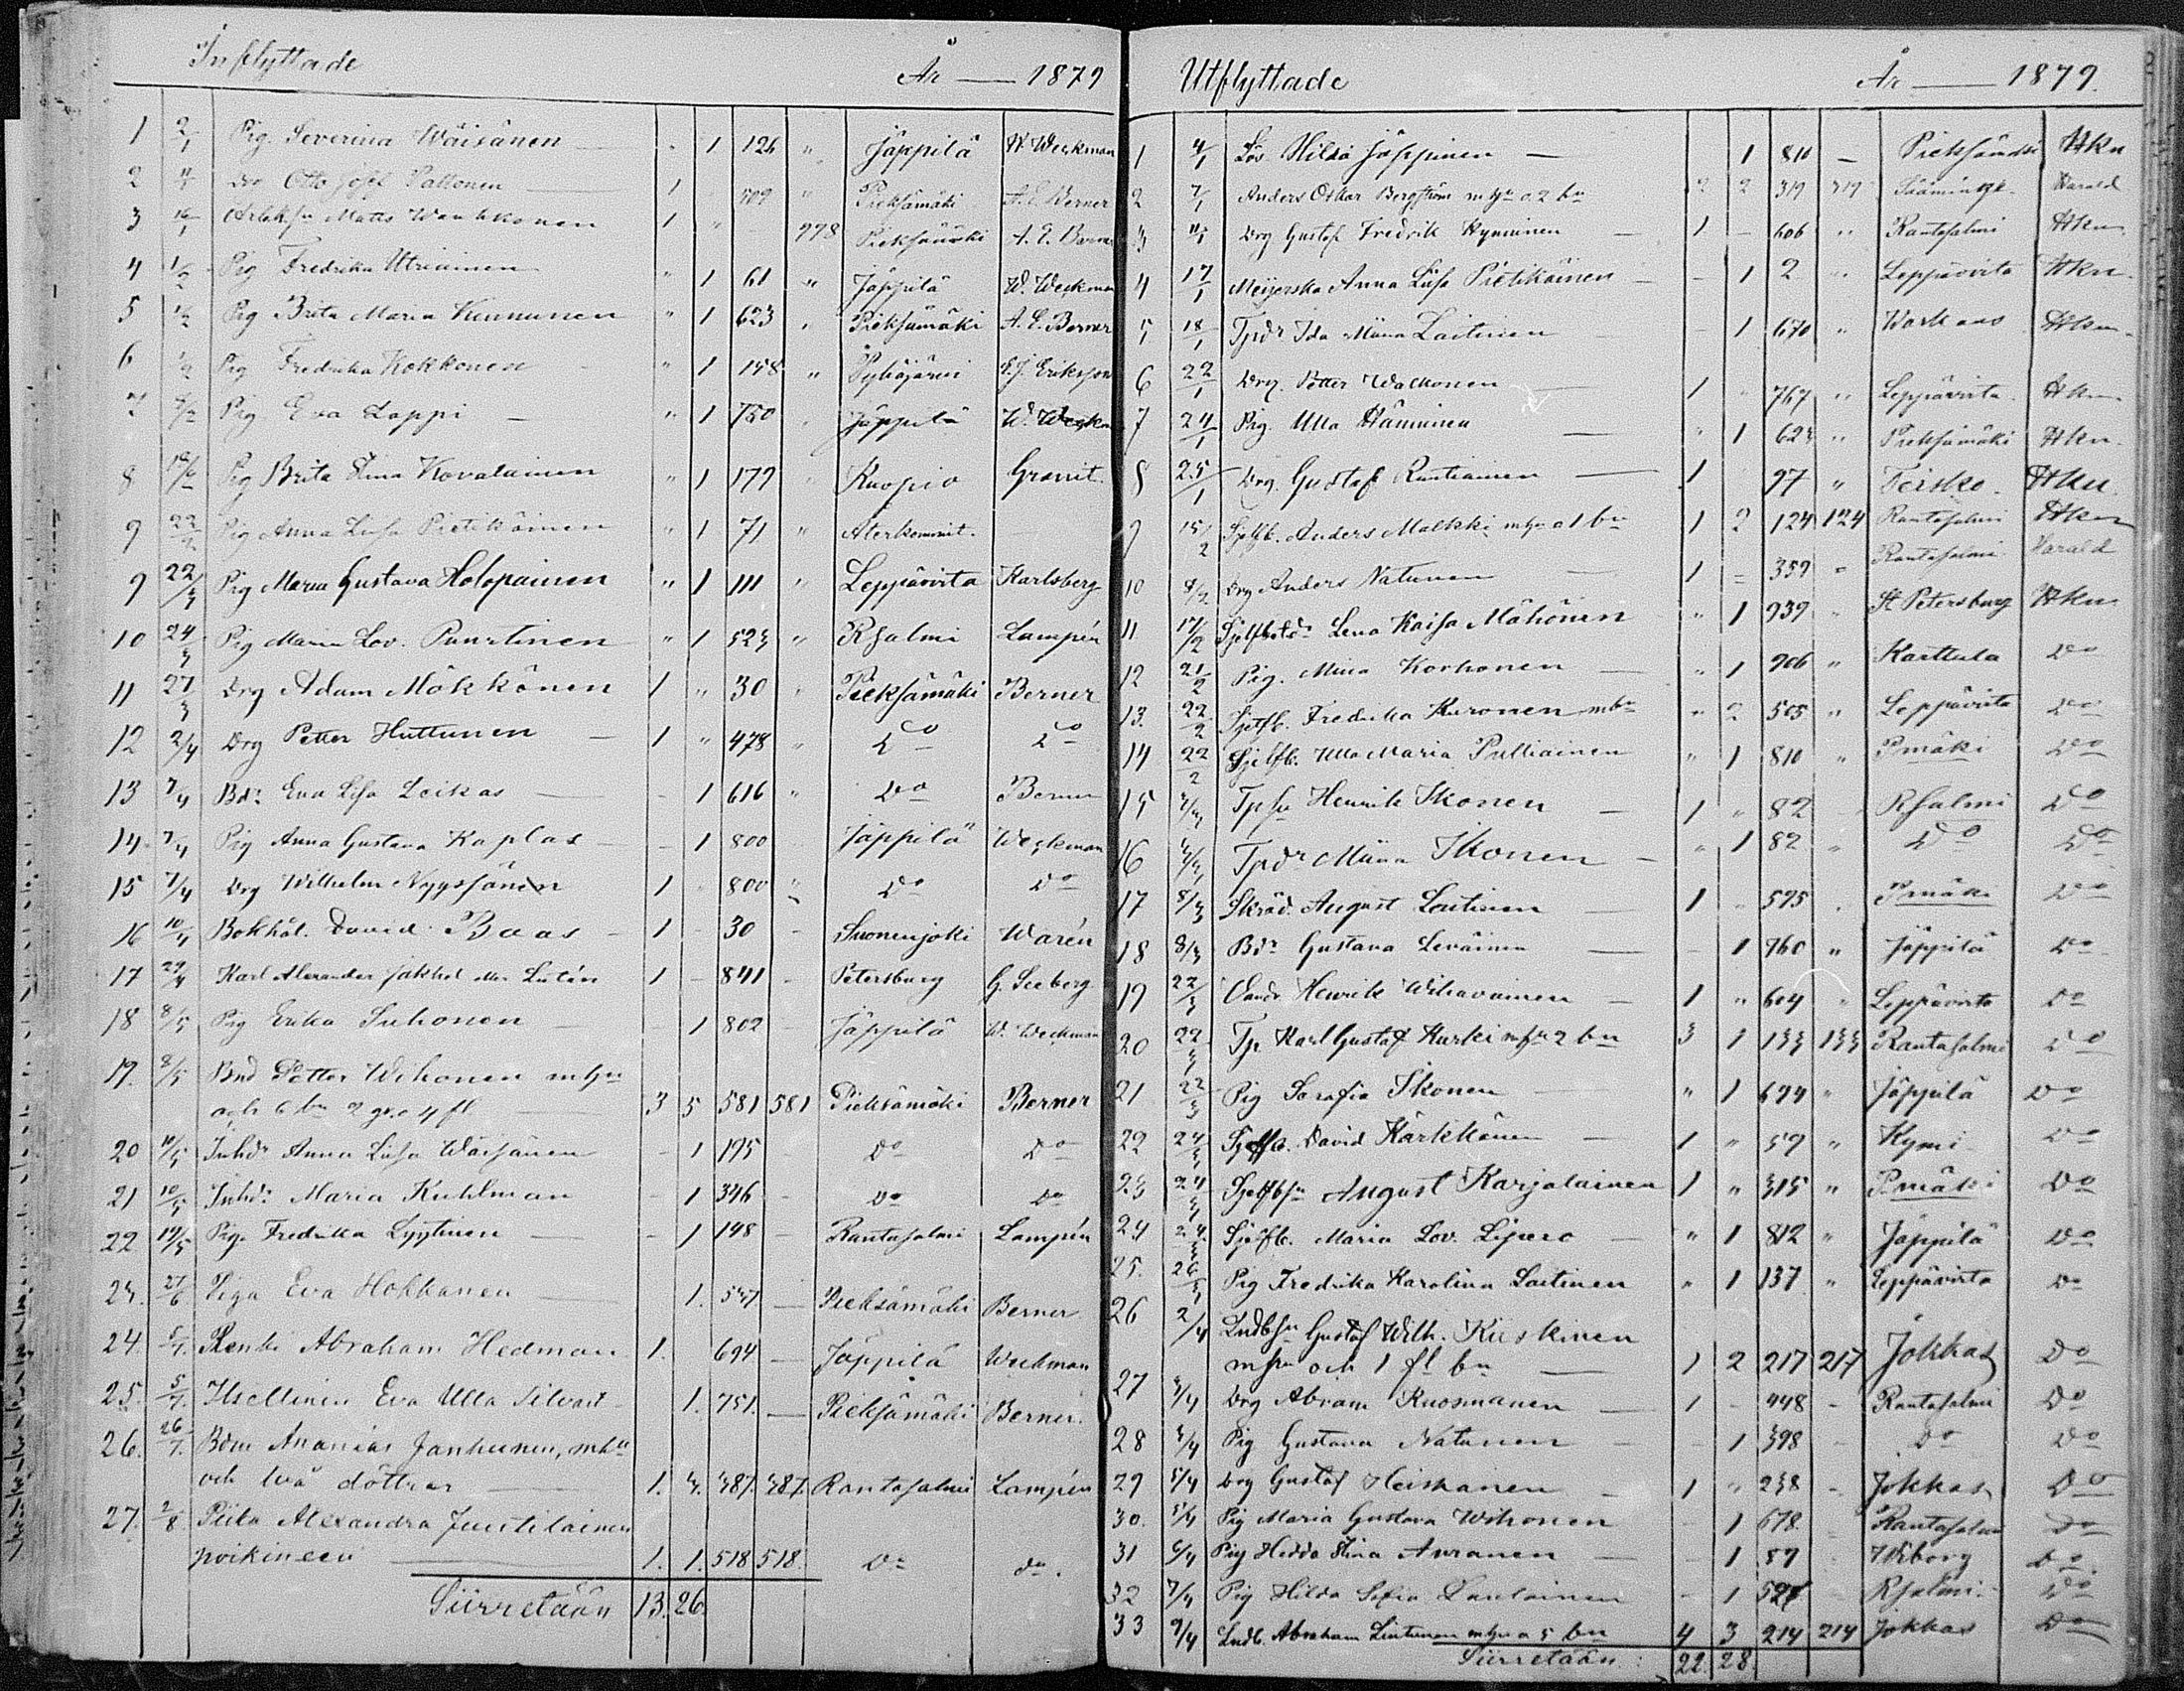 Inflyttade År — 1879
1 2/1 Pig. Severina Wäisänen " 1 126 " Jäppilä W. Weckman
2 Drg Otto Josef Pattonen 1 509 " Pieksämäki A. E. Berner
3 16/1 Matts 1 " 998 Pieksämäki A. E. Berner
4 1/2 Pig Fredrika Utriainen " 1 61 " Jäppilä W. Weckman
5 1/2 Pig Brita Maria Kinnunen " 1 623 " Pieksämäki A. E. Berner
6 1/2 Pig Fredrika Kokkonen " 1 158 " Pyhäjärvi Eriksson
7 Pig Eva Lappi — " 1 750 Jäppilä W. Weckman
8 Pig Brita Stina Kovalainen " 1 179 " Kuopio Granit.
9 22/2 Pig Anna Lisa Pietikäinen " 1 71 " Återkommit.
9 22/3 Pig Maria Gustava Holopainen " 1 111 " Leppävirta Karlsberg
10 24/3 Pig Maria Lov. Puurtinen " 1 523 " Rsalmi Lampén
11 27/3 Drg Adam Mökkönen 1 " 30 " Pieksämäki Berner
12 2/4 Drg Petter Huttunen — 1 " 478 " Do Do
13 7/4 Bdr Eva Lisa Leikas — - 1 616 " Do Berner
14 7/4 Pig Anna Gustava Kaplas — - 1 800 Jäppilä Weckman
15 7/4 Drg Wilhelm Nyyssönen 1 " 800 " Do Do
16 10/4 Bokhål. David Baas - 1 - 30 - Suonenjoki Warén
17 29/4 Karl Alexander Lutén 1 - 841 - Petersburg G. Seeberg
18 8/5 Pig Erika Suhonen — - 1 802 - Jäppilä W. Weckman
19. 8/5 Bnd Petter Wihonen m hu
och 6 bn 2 gr. o 4 fl — 3 5 581 581 Pieksämäki Berner
20 10/5 Inhdr Anna Lisa Wäisänen - 1 195 - Do Do
21 10/5 Inhdr Maria Kuhlman - 1 346 - Do Do
22 19/5 Pig. Fredrika Lyytinen — - 1 148 - Rantasalmi Lampén
23. 27/6 Piga Eva Hokkanen — 1. 547. — Pieksämäki Berner.
24. 5/7. Renki Abraham Hedman 1. 694 — Jäppilä Weckman
25. 5/7. Itsellinen Eva Ulla Silvast 1. 751. — Pieksämäki Berner.
26. 26/7. Bdm Ananias Janhunen, m hu
och två döttrar — 1. 3. 387. 387. Rantasalmi Lampén
27. 2/8. Piika Alexandra Juutilainen
poikineen — 1. 1. 518 518. Do do.
Siirretään 13. 26.
Utflyttade År — 1879.
1 4/1 Lös Hilda Jäppinen — 1 810 — Pieksämäki Hkn
2 7/1 Anders Oskar Bergström m hu o 2 bn 2 2 319 319 Säämingi Harald
3 11/1 Drg Gustaf Fredrik Hynninen — 1 - 606 " Rantasalmi Hkn
4 17/1 Meijerska Anna Lisa Pietikäinen - 1 2 " Leppävirta Hkn.
5 18/1 Tpdr Ida Miina Laitinen - 1 670 " Warkaus Hkn.
6 22/1 Drg. Petter Wackonen 1 " 767 " Leppävirta Hkn.
7 24/1 Pig. Ulla Hänninen " 1 623 " Pieksämäki Hkn.
8 25/1 Drg. Gustaf Rantiainen — 1 97 " Teisko. Hkn.
9 15/2 Sjelfb. Anders Malkki m hu o 1 bn 1 2 124 124 Rantasalmi Hkn
10 Drg Anders Natunen 1 - 359 " Rantasalmi Harald
11 17/2 Sjelfbdr Lena Kaisa Mähönen " 1 939 St Petersburg Hkn.
12 21/2 Pig. Miina Korhonen — " 1 906 " Karttula Do
13. 22/2 Sjelfb. Fredrika Kuronen m bn " 2 505 " Leppävirta Do
14 22/2 Sjelfb. Ulla Maria Pulliainen " 1 810 " Pmäki Do
15 Tpsn Henrik Ikonen — 1 " 82 - Rsalmi Do
16 Tpdr Miina Ikonen — " 1 82 " Do Do
17 8/3 Skräd. August Laitinen — 1 " 595 . Pmäki Do
18 8/3 Bdr Gustava Leväinen — - 1 760 " Jäppilä Do
19 22/3 Henrik Wihavainen — 1 " 604 " Leppävirta Do
20 22/3 Tp Karl Gustaf Kurki m hu 2 bn 3 1 133 133 Rantasalmi Do
21 22/3 Pig Serafia Ikonen — " 1 694 " Jäppilä Do
22 24/3 Sjelfb. David Kärkkänen — 1 " 59 " Kymi Do
23 24/3 Sjelfbsn August Karjalainen 1 " 315 " Pmäki Do
24 24/3 Sjelfb. Maria Lov. Lipero — " 1 812 " Jäppilä Do
25. 26/3 Pig Fredrika Karolina Laitinen " 1 137 " Leppävirta Do
26 2/4 Lndbsn Gustaf Wilh. Kiiskinen
m hu och 1 fl bn — 1 2 217 217 Jokkas Do
27 3/4 Drg Abram Ruosmanen — 1 - 448 - Rantasalmi Do
28 3/4 Pig Gustava Natunen — - 1 398 - Do Do
29 5/4 Drg Gustaf Heiskanen — 1 " 238 - Jokkas Do
30. 5/4 Pig Maria Gustava Wihonen - 1 678 - Rantasalmi Do
31 Pig Hedda Stina Auranen — - 1 87 Wiborg Do
32 7/4 Pig Hilda Sofia Lautainen - 1 521 Rsalmi Do
33 9/4 Lndb. Abraham Lintunen m hu o 5 bn 4 3 214 214 Jokkas Do
Siirretään: 22. 28.